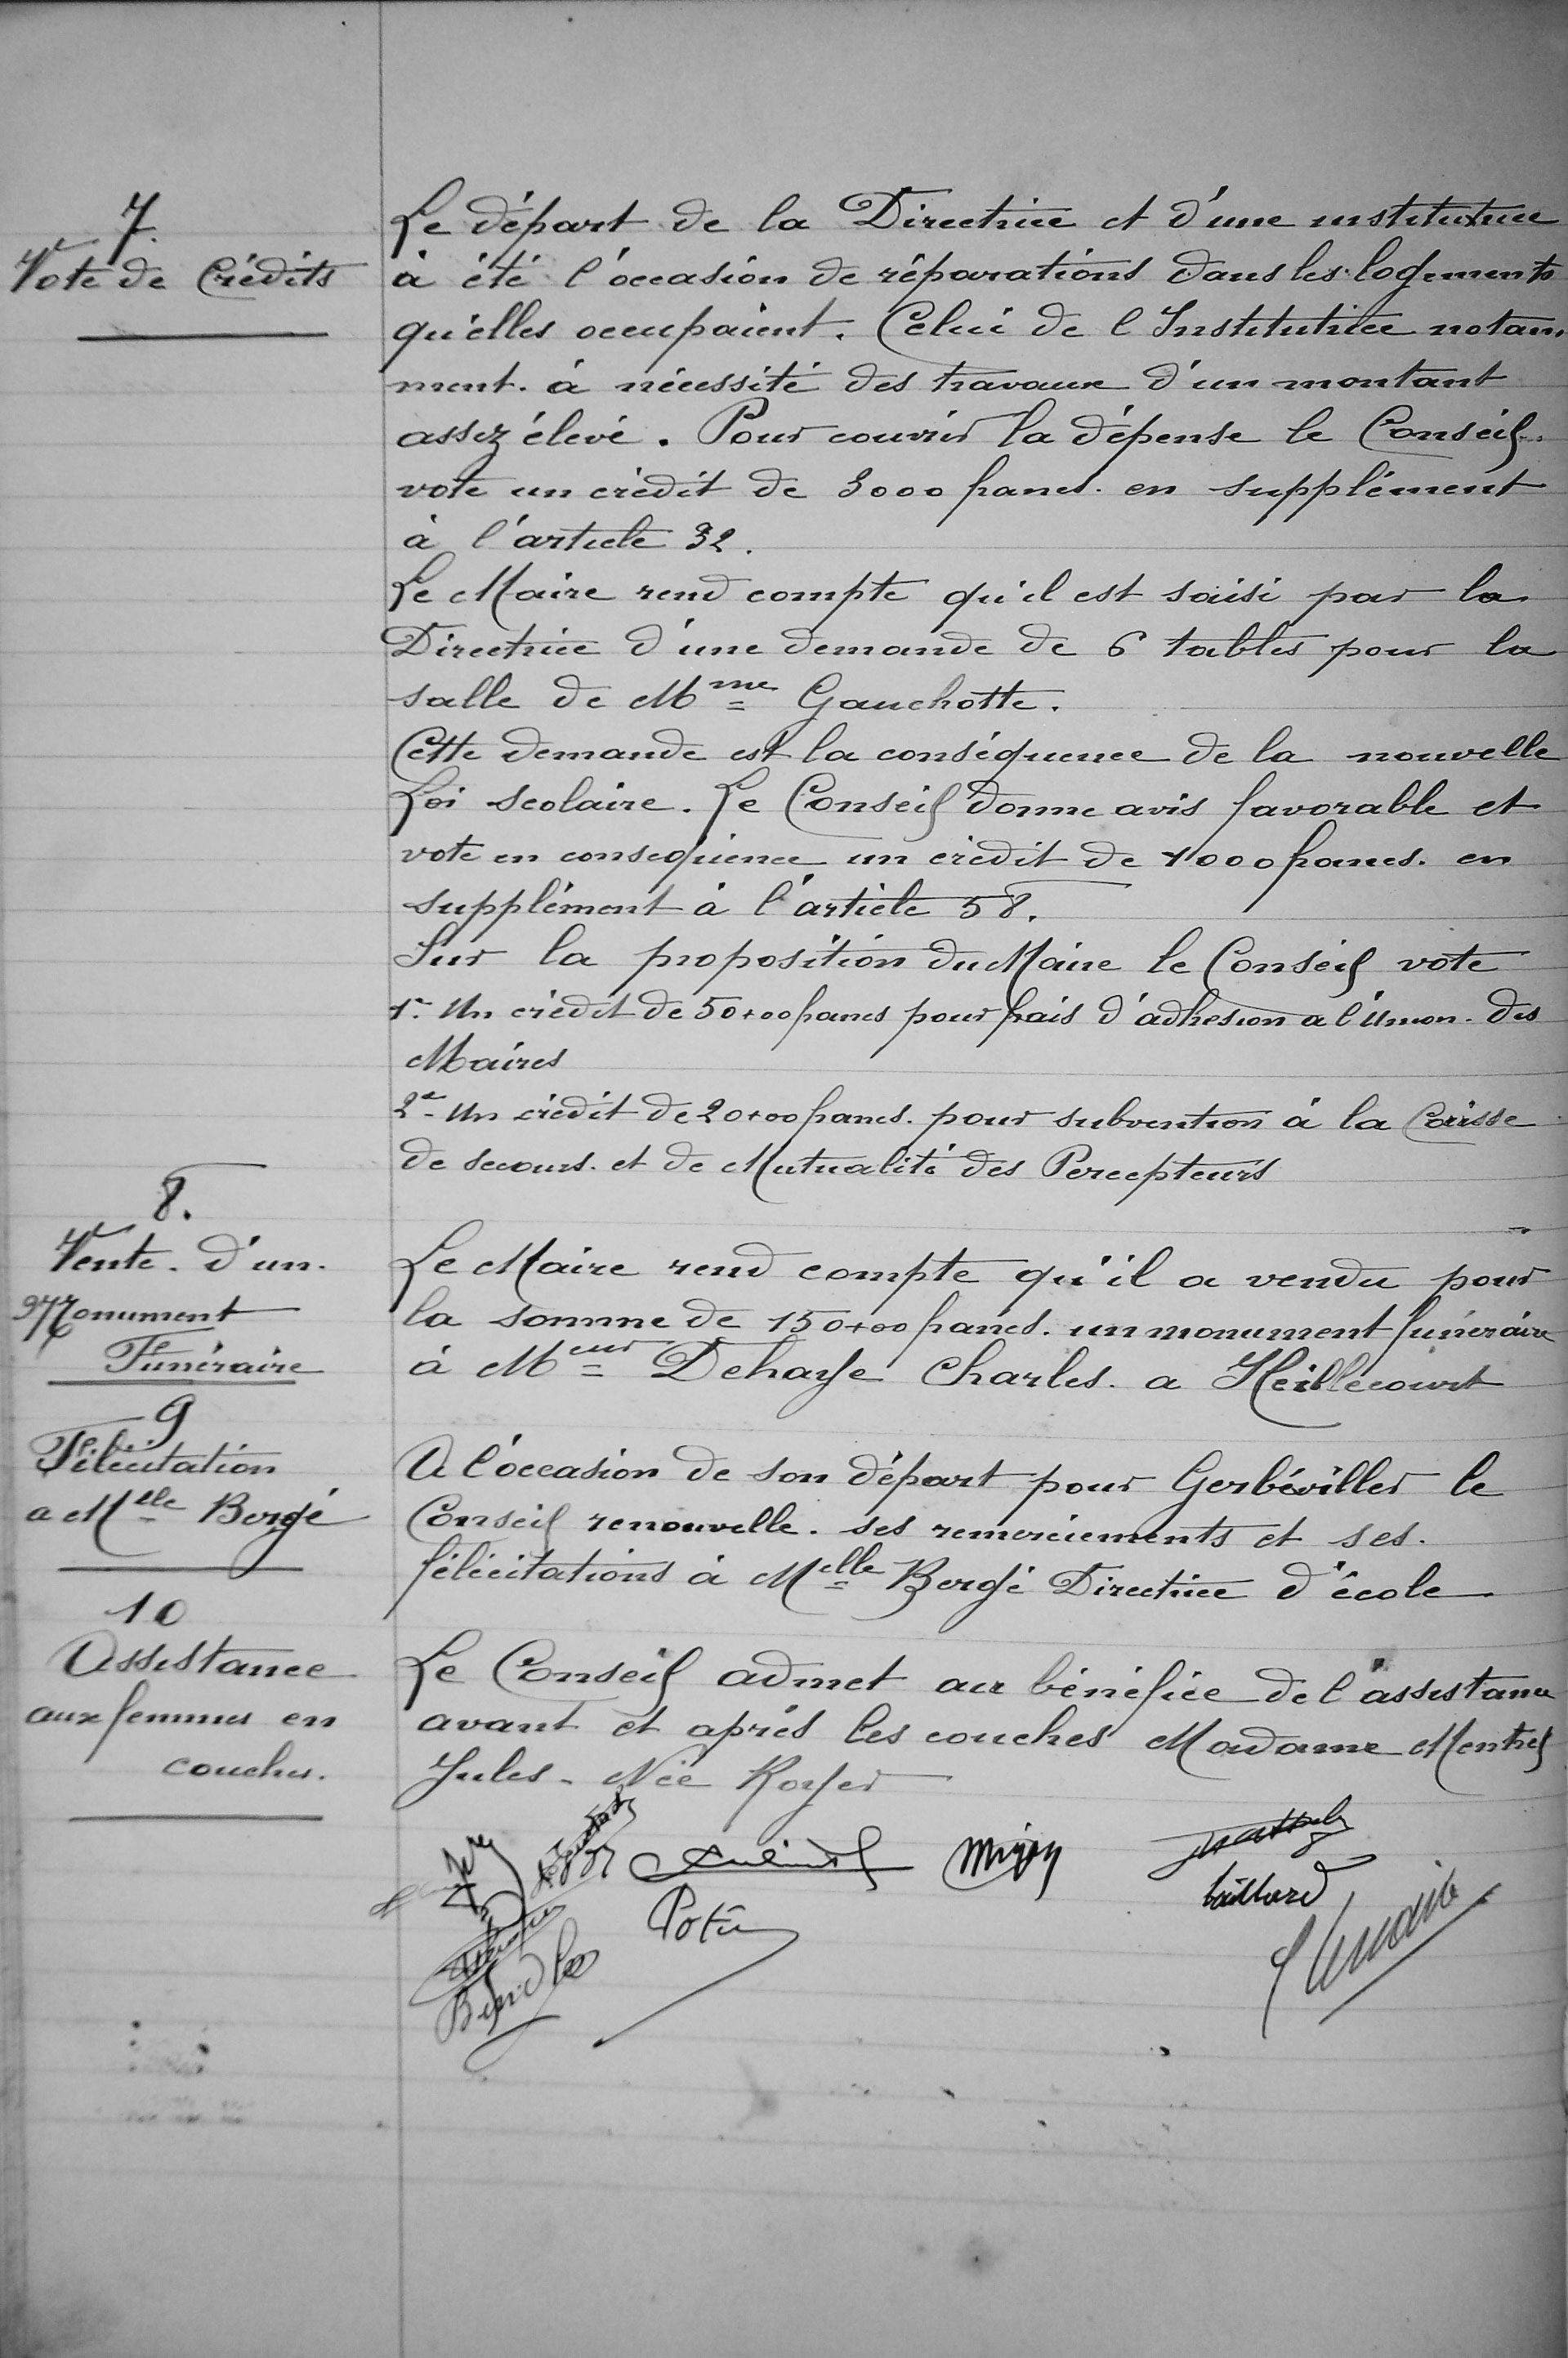 7.
Vote de Crédits
Le départ de la Directrice et d'une institutrice
à été l'occasion de réparations dans les logements
qu'elles occupaient. Celui de l'Institutrice notam-
ment à nécessité des travaux d'un montant
assez élevé. Pour couvrir la dépense le Conseil
vote un crédit de 3000 francs en supplément
à l'article 32.
Le Maire rend compte qu'il est saisi par la
Directrice d'une demande de 6 tables pour la
salle de Mme Gauchotte.
Cette demande est la conséquence de la nouvelle
Loi scolaire. Le Conseil donne avis favorable et
vote en consequence un crédit de 1000 francs. en
supplément à l'article 58.
Sur la proposition du Maire le Conseil vote
1° Un crédit de 50+00 francs pour frais d'adhesion a l'Union des
Maires
2° Un crédit de 20+00 francs. pour subvention à la Caisse
de secours. et de Mutualité des Percepteurs
8.
Vente d'un
Monument
Funéraire
Le Maire rend compte qu'il a vendu pour
la somme de 150+00 francs. un monument funéraire
à Meur Dehaye Charles a Heillecourt
9
Félicitation
a Melle Bergé
A l'occasion de son départ pour Gerbéviller le
Conseil renouvelle ses remerciements et ses
félicitations à Melle Bergé Directrice d'école
10
Assistance
aux femmes en
couches.
Le Conseil admet au bénéfice de l'assistance
avant et après les couches Madame Mentrel
Jules. Née Royer